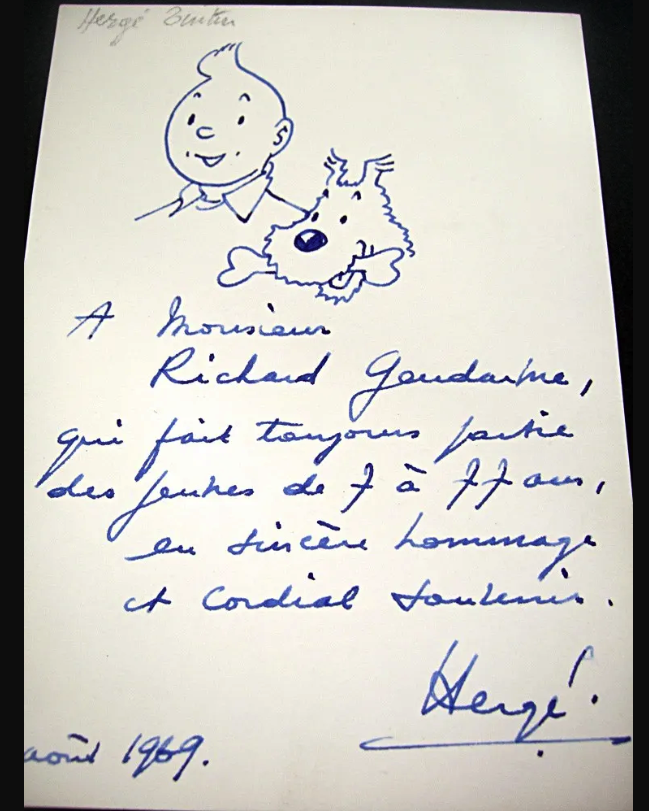 Hergé Tintin
A Monsieur
Richard Gendarme,
qui fait toujours partie
des jeunes de 7 à 77 ans,
en sincère hommage
et cordial souvenir.
Hergé.
août 1969.